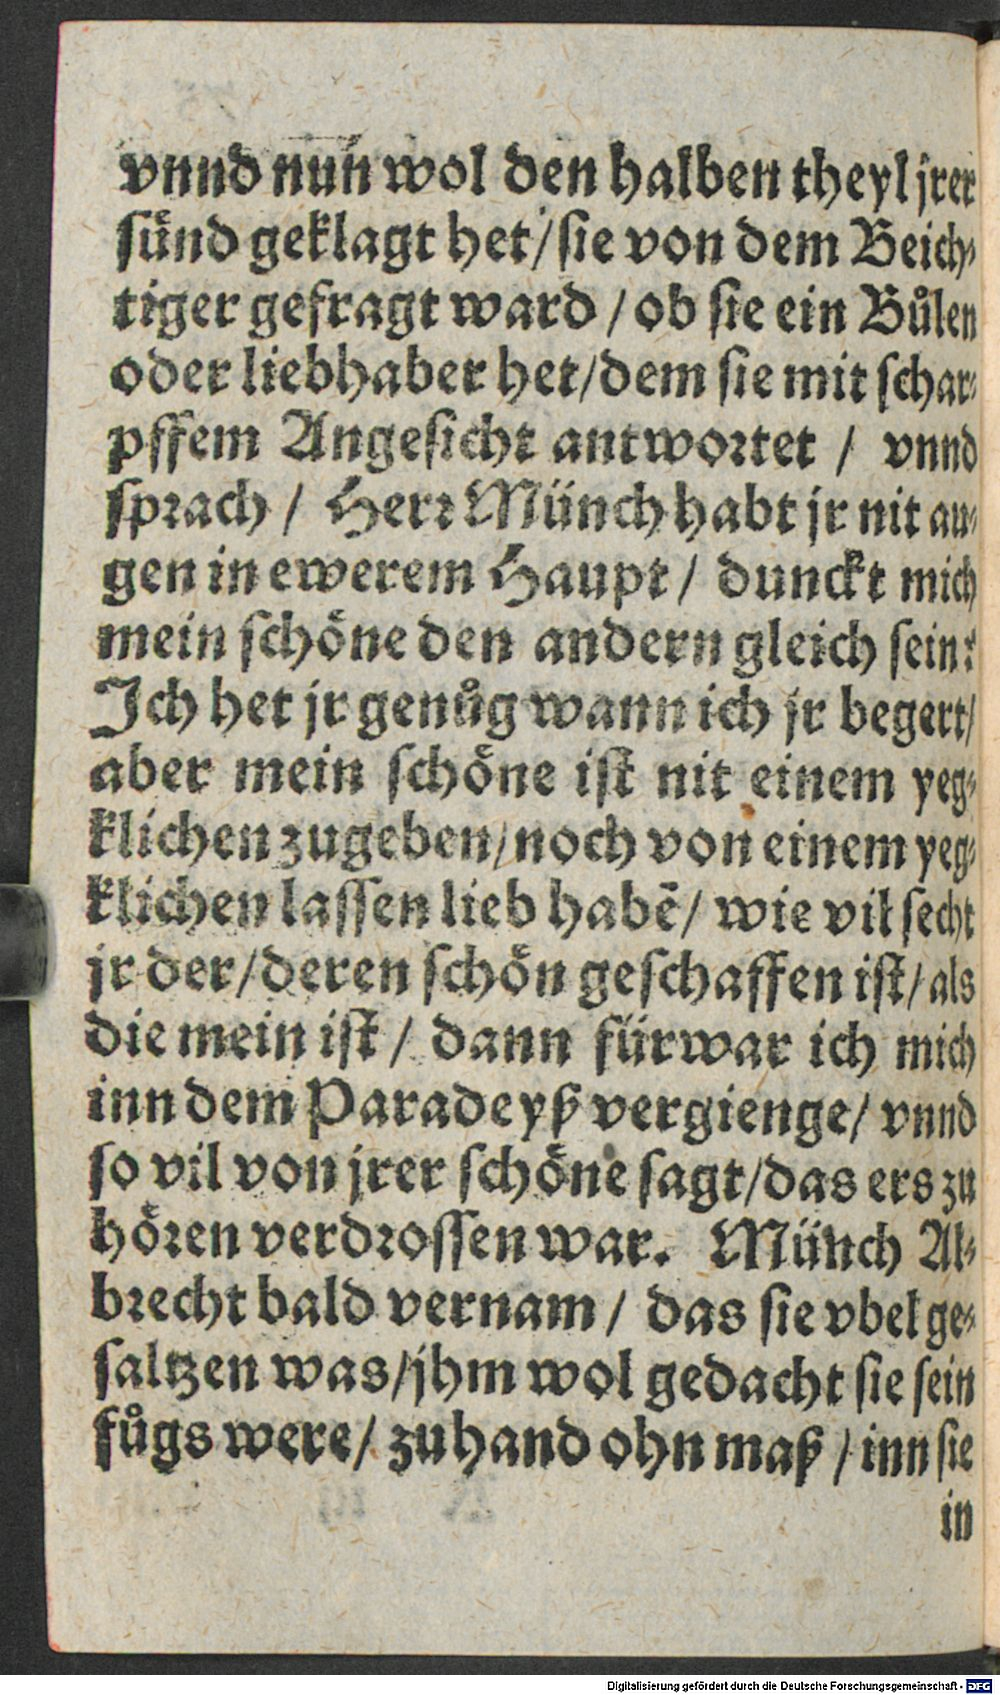 vnnd nun wol den halben theyl jrer
sünd geklagt het/sie von dem Beich⸗
tiger gefragt ward / ob sie ein Bůlen
oder liebhaber het/dem sie mit schar⸗
pffem Angesicht antwortet / vnnd
sprach / Herr Münch habt jr nit au⸗
gen in ewerem Haupt / dunckt mich
mein schöne den andern gleich sein?
Ich het jr genůg wann ich jr begert/
aber mein schöne ist nit einem yeg⸗
klichen zugeben/noch von einem yeg⸗
klichen lassen lieb habē/ wie vil secht
jr der/deren schön geschaffen ist/ als
die mein ist / dann fürwar ich mich
inn dem Paradeyß vergienge/ vnnd
so vil von jrer schöne sagt/das ers zu
hören verdrossen war. Münch Al⸗
brecht bald vernam / das sie vbel ge⸗
saltzen was/jhm wol gedacht sie sein
fůgs were/ zuhand ohn maß / inn sie
in
Digitalisierung gefördert durch die Deutsche Forschungsgemeinschaft - DFG